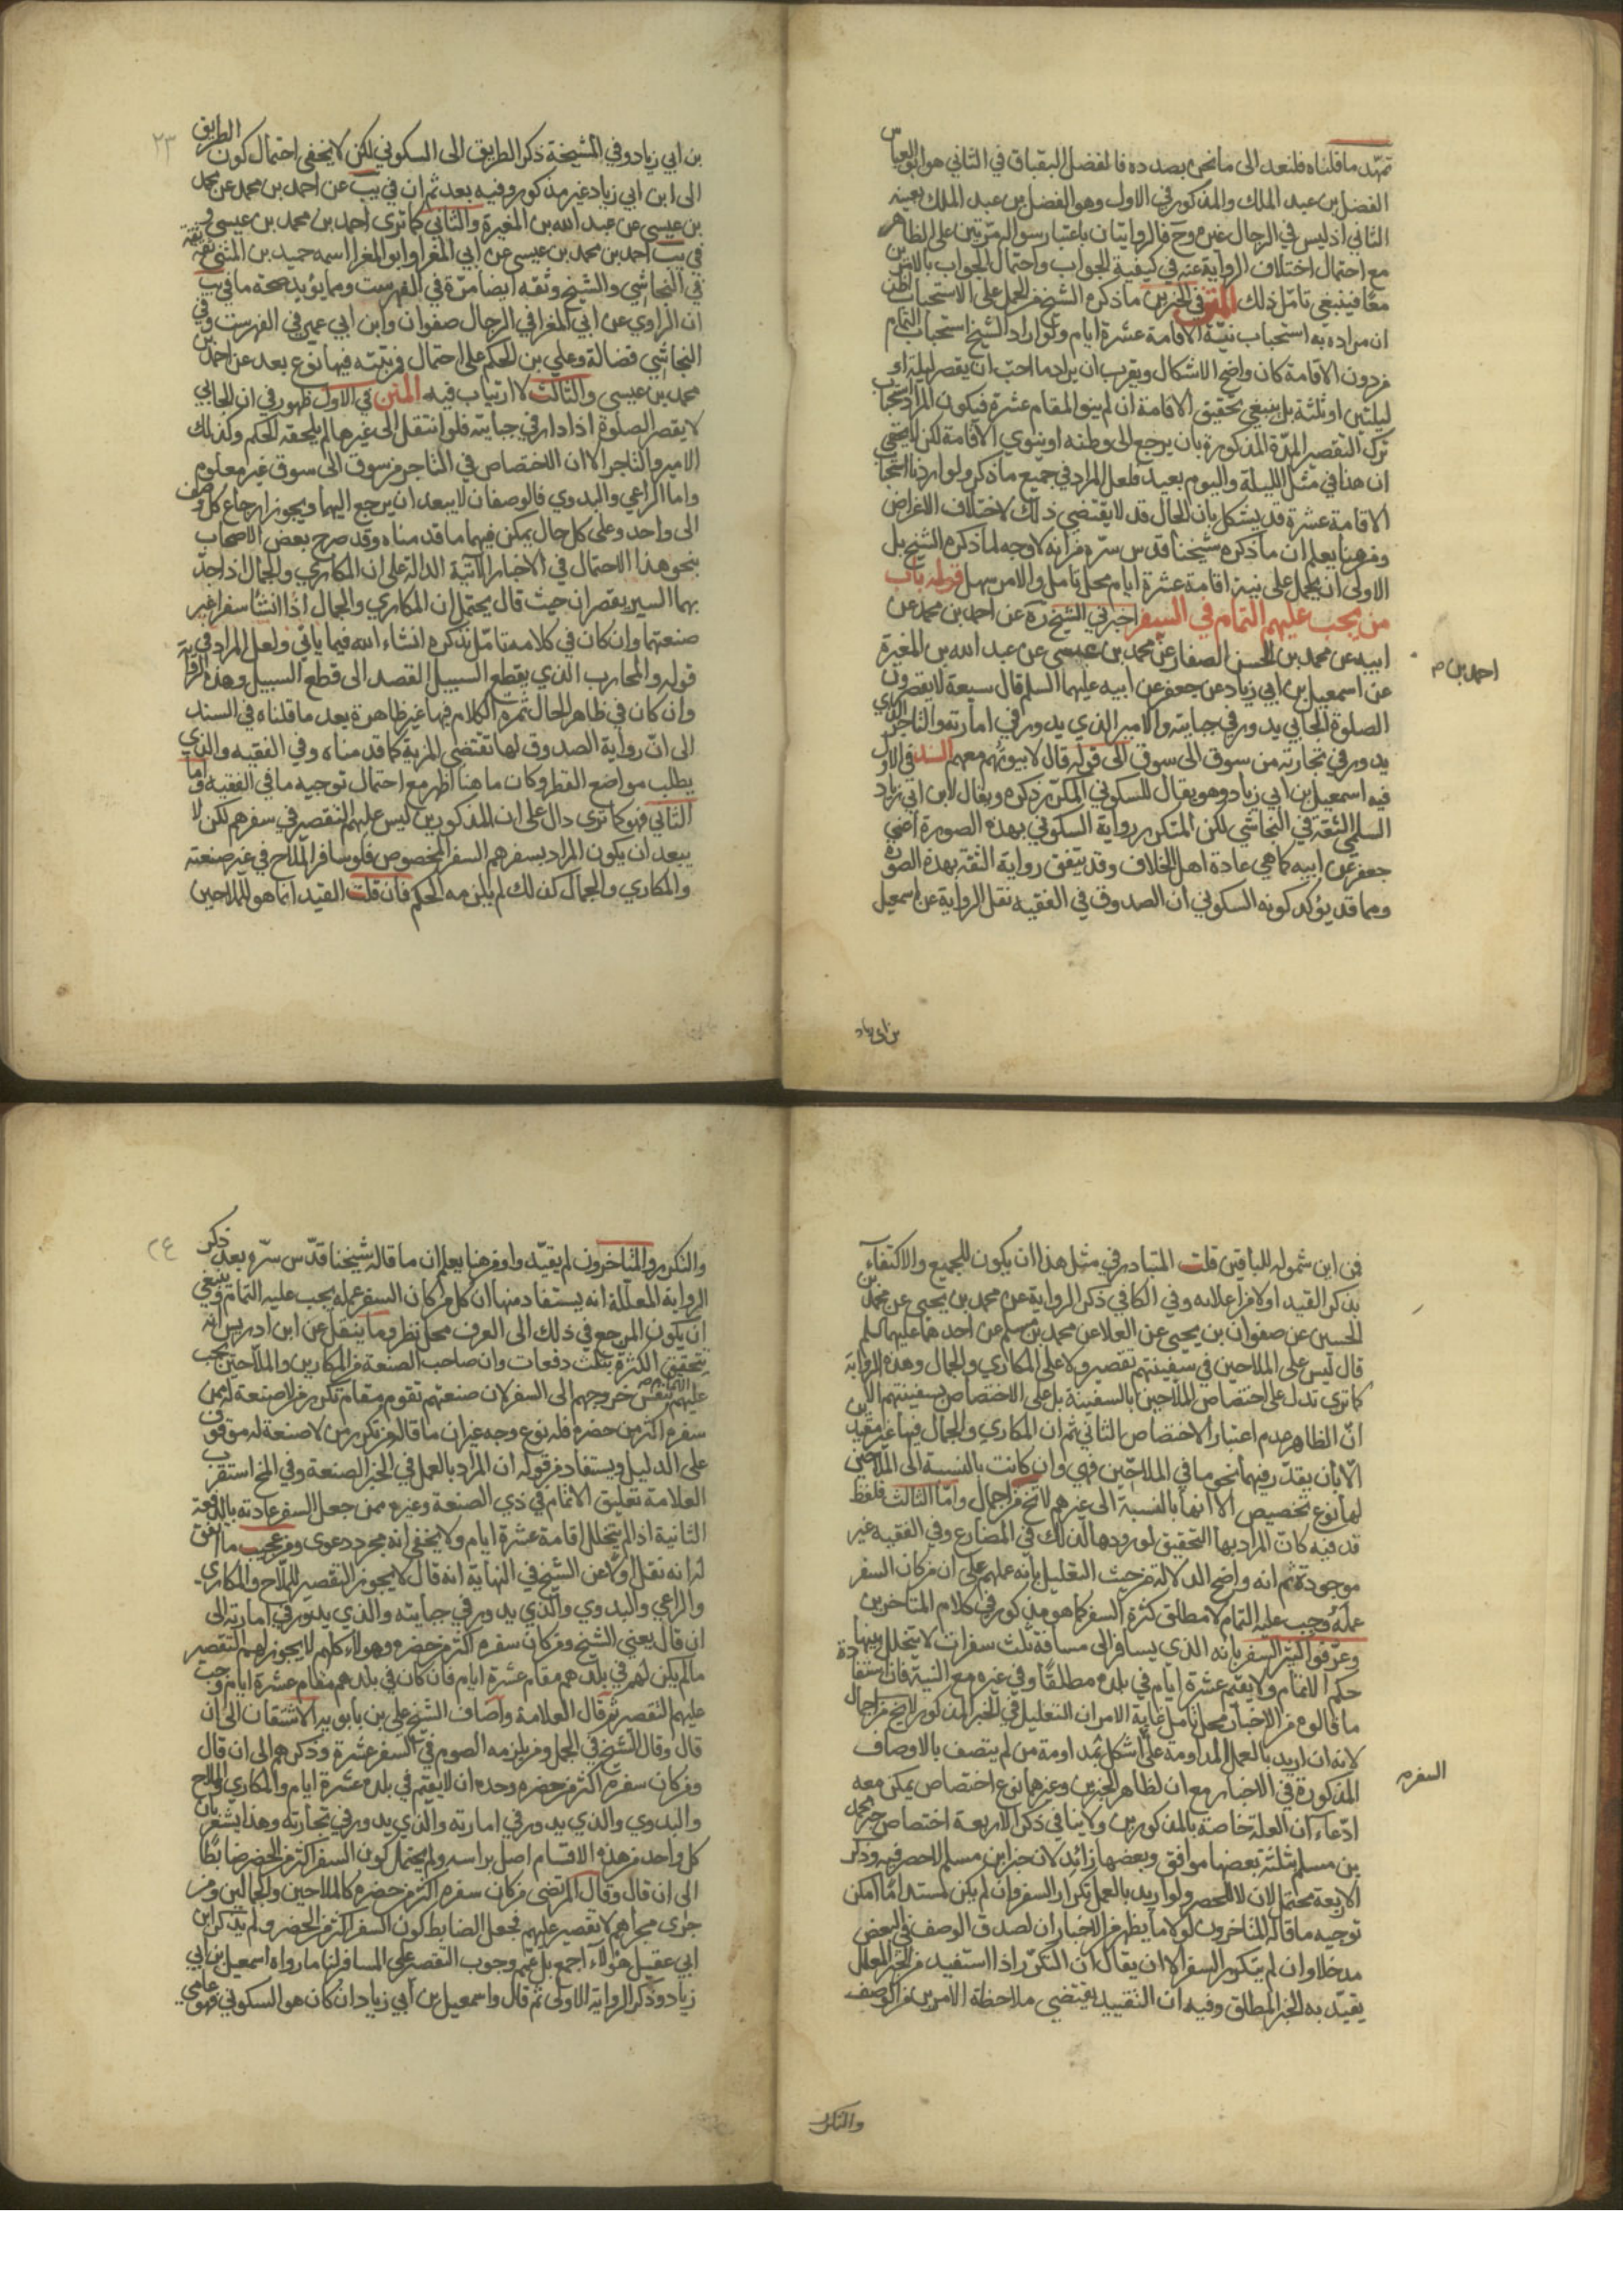 تمهّد ما قلناه فلنعد الى ما نحن بصدده فالفضل البقباق في الثاني هو ابو العباس
الفضل بن عبد الملك والمذكور في الاول وهو الفضل بن عبد الملك بعينه
الثاني اذ ليس في الرجال غيره وح فالروايتان باعتبار سواله مرتين على الظاهر
مع احتمال اختلاف الرواية عنه في كيفية الجواب واحتمال الجواب بالامرين
معًا فينبغي تامّل ذلك المتن في الخبرين ما ذكره الشيخ من الحمل على الاستحباب اظن
ان مراده به استحباب نيّة الاقامة عشرة ايام ولو اراد الشيخ استحباب التمام
من دون الاقامة كان واضح الاشكال ويقرب ان يراد ما احبّ ان يقصر ليلة او
ليلتين او ثلثة بل ينبغي تحقيق الاقامة ان لم ينو المقام عشرة فيكون المراد استحباب
ترك التقصير المدّة المذكورة بان يرجع الى وطنه او ينوي الاقامة لكن لا يخفى
ان هذا في مثل الليلة واليوم بعيد فلعل المراد في جميع ما ذكر ولو اردنا استحباب
الاقامة عشرة قد يشكل بان الحال قد لا يقتضي ذلك لاختلاف الاغراض
ومن هنا يعلم ان ما ذكره شيخنا قدس سرّه من انه لا وجه لما ذكره الشيخ بل
الاولى ان يحمل على نية اقامة عشرة ايام محل تامل والامر سهل قوله باب
من يجب عليهم التمام في السفر اخبرني الشيخ ره عن احمد بن محمد عن
ابيه عن محمد بن الحسن الصفار عن محمد بن عيسى عن عبد الله بن المغيرة
احمد بن م
عن اسمعيل بن ابي زياد عن جعفر عن ابيه عليهما السلم قال سبعة لا يقصرون
الصلوة الجابي يدور في جبايته والامير الذي يدور في امارته والتاجر الذي
يدور في تجارته من سوق الى سوق الى قوله قال لا بيوتهم معهم السند في الاول
فيه اسمعيل بن ابي زياد وهو يقال للسكوني المتكرر ذكره ويقال لابن ابي زياد
السلمي الثقة في النجاشي لكن المتكرر رواية السكوني بهذه الصورة اعني
جعفر عن ابيه كما هي عادة اهل الخلاف وقد يتفق رواية الثقة بهذه الصورة
ومما قد يؤكد كونه السكوني ان الصدوق في الفقيه نقل الرواية عن اسمعيل
بن ابي زياد
٢٣
بن ابي زياد وفي المشيخة ذكر الطريق الى السكوني لكن لا يخفى احتمال كون الطريق
الى ابن ابي زياد غير مذكور وفيه بعد ثم ان في يب عن احمد بن محمد عن محمد
بن عيسى عن عبد الله بن المغيرة والثاني كما ترى احمد بن محمد بن عيسى و
في يب احمد بن محمد بن عيسى عن ابي المغرا وابو المغرا اسمه حميد بن المثنى ثقة
في النجاشي والشيخ وثقه ايضا مرّة في الفهرست ومما يؤيد صحة ما في يب
ان الراوي عن ابي المغرا في الرجال صفوان وابن ابي عمير في الفهرست وفي
النجاشي فضالة وعلي بن الحكم على احتمال ومرتبته فيها نوع بعد عن احمد بن
محمد بن عيسى والثالث لا ارتياب فيه المتن في الاول ظهور في ان الجابي
لا يقصر الصلوة اذا دار في جبايته فلو انتقل الى غيرها لم يلحقه الحكم وكذلك
الامير والتاجر الا ان الاختصاص في التاجر من سوق الى سوق غير معلوم
واما الراعي والبدوي فالوصفان لا يبعد ان يرجع اليهما ويجوز ارجاع كل وصف
الى واحد وعلى كل حال يمكن فيهما ما قدمناه وقد صرح بعض الاصحاب
بنحو هذا الاحتمال في الاخبار الآتية الدالة على ان المكاري والجمال اذا جدّ
بهما السير يقصران حيث قال يحتمل ان المكاري والجمال اذا انشا سفرا غير
صنعتهما وان كان في كلامه تامّل نذكره انشاء الله فيما ياتي ولعل المراد في
قوله والمحارب الذي يقطع السبيل القصد الى قطع السبيل وهذه
وان كان في ظاهر الحال ثمرة الكلام فيها غير ظاهرة بعد ما قلناه في السند
الى انّ رواية الصدوق لها تقتضي المزية كما قدمناه وفي الفقيه والذي
يطلب مواضع القطر وكان ما هنا اظهر مع احتمال توجيه ما في الفقيه واما
الثاني فهو كما ترى دال على ان المذكورين ليس عليهم التقصير في سفرهم لكن لا
يبعد ان يكون المراد بسفرهم السفر المخصوص فلو سافر الملاح في غير صنعته
والمكاري والجمال كذلك لم يلزمه الحكم فان قلت القيد انما هو للملاحين
فمن اين شموله للباقين قلت المتبادر في مثل هذا ان يكون للجميع والاكتفاء
بذكر القيد اولا من اعلانه وفي الكافي ذكر الرواية عن محمد بن يحيى عن محمد بن
الحسين عن صفوان بن يحيى عن العلا عن محمد بن مسلم عن احدهما عليهما السلم
قال ليس على الملاحين في سفينتهم تقصير ولا على المكاري والجمال وهذه الرواية
كما ترى تدل على اختصاص الملاحين بالسفينة بل على الاختصاص بسفينتهم الا
انّ الظاهر عدم اعتبار الاختصاص الثاني ثم ان المكاري والجمال فيها غير مقيدين
الّا بان يقدّر فيهما نحو ما في الملاحين فهي وان كانت بالنسبة الى الملاحين
لها نوع تخصيص الا انها بالنسبة الى غيرهم لا تخ من اجمال وامّا الثالث فلفظ
قد فيه كانّ المراد بها التحقيق لورودها لذلك في المضارع وفي الفقيه غير
موجودة ثم انه واضح الدلالة من حيث التعليل بانه عملهم على ان من كان السفر
عمله وجب عليه التمام لا مطلق كثرة السفر كما هو مذكور في كلام المتاخرين
وعرّفوا كثير السفر بانه الذي يسافر الى مسافة ثلث سفرات لا يتخلل بينها
حكم الاتمام ولا يقيم عشرة ايام في بلده مطلقًا وفي غيره مع النية فان استفادة
ما قالوه من الاخبار محل تامل غاية الامر ان التعليل في الخبر المذكور لا يخ من اجمال
لانه ان اريد بالعمل المداومة على اشكل بمداومة من لم يتصف بالاوصاف
السفر م
المذكورة في الاخبار مع ان لظاهر الخبرين وغيرهما نوع اختصاص يمكن معه
ادّعاء ان العلة خاصة بالمذكورين ولا ينافي ذكر الاربعة اختصاص خبر محمد
بن مسلم بثلثة بعضها موافق وبعضها زائد لان خبر ابن مسلم لا حصر فيه وذكر
الاربعة محتمل لان لا للحصر ولو اريد بالعمل تكرار السفر وان لم يكن مستداما امكن
توجيه ما قاله المتاخرون لولا ما يظهر من الاخبار ان لصدق الوصف في البعض
مدخلا وان لم يتكرر السفر الا ان يقال ان التكرّر اذا استفيد من الخبر المعلل
يقيّد به الخبر المطلق وفيه ان التقييد يقتضي ملاحظة الامرين من الوصف
والتكرر
٢٤
والتكرر والمتاخرون لم يقيّدوا ومن هنا يعلم ان ما قاله شيخنا قدّس سرّه بعد ذكر
الرواية المعللة انه يستفاد منها ان كل من كان السفر عمله يجب عليه التمام وينبغي
ان يكون المرجع في ذلك الى العرف محل نظر وما ينقل عن ابن ادريس انه
تتحقق الكثرة بثلث دفعات وان صاحب الصنعة من المكارين والملاحين يجب
عليهم الاتمام بنفس خروجهم الى السفر لان صنعتهم تقوم مقام تكرر من لا صنعة له ممن
سفره اكثر من حضره فله نوع وجه غير ان ما قاله من تكرر من لا صنعة له موقوف
على الدليل ويستفاد من قوله ان المراد بالعمل في الخبر الصنعة وفي المخ استقرب
العلامة تعليق الاتمام في ذي الصنعة وغيره ممن جعل السفر عادته بالدفعة
الثانية اذا لم يتخلل اقامة عشرة ايام ولا يخفى انه مجرد دعوى ومن عجيب ما اتفق
له انه نقل اولا عن الشيخ في النهاية انه قال لا يجوز التقصير للملاح والمكاري
والراعي والبدوي والذي يدور في جبايته والذي يدور في امارته الى
ان قال يعني الشيخ ومن كان سفره اكثر من حضره وهولاء كلهم لا يجوز لهم التقصير
ما لم يكن لهم في بلدهم مقام عشرة ايام فان كان في بلدهم مقام عشرة ايام وجب
عليهم التقصير ثم قال العلامة واضاف الشيخ علي بن بابويه الاشتقان الى ان
قال وقال الشيخ في الجمل ومن يلزمه الصوم في السفر عشرة وذكرهم الى ان قال
ومن كان سفره اكثر من حضره وحده ان لا يقيم في بلده عشرة ايام والمكاري والملاح
والبدوي والذي يدور في امارته والذي يدور في تجارته وهذا يشعر بان
كل واحد من هذه الاقسام اصل براسه ولم يحتمل كون السفر اكثر من الحضر ضابطًا
الى ان قال وقال المرتضى من كان سفره اكثر من حضره كالملاحين والجمالين ومن
جرى مجراهم لا تقصير عليهم فجعل الضابط كون السفر اكثر من الحضر ولم يذكر ابن
ابي عقيل هؤلاء اجمع بل عمّم وجوب القصر على المسافر لنا ما رواه اسمعيل بن ابي
زياد وذكر الرواية الاولى ثم قال واسمعيل بن ابي زياد ان كان هو السكوني فهو عامي